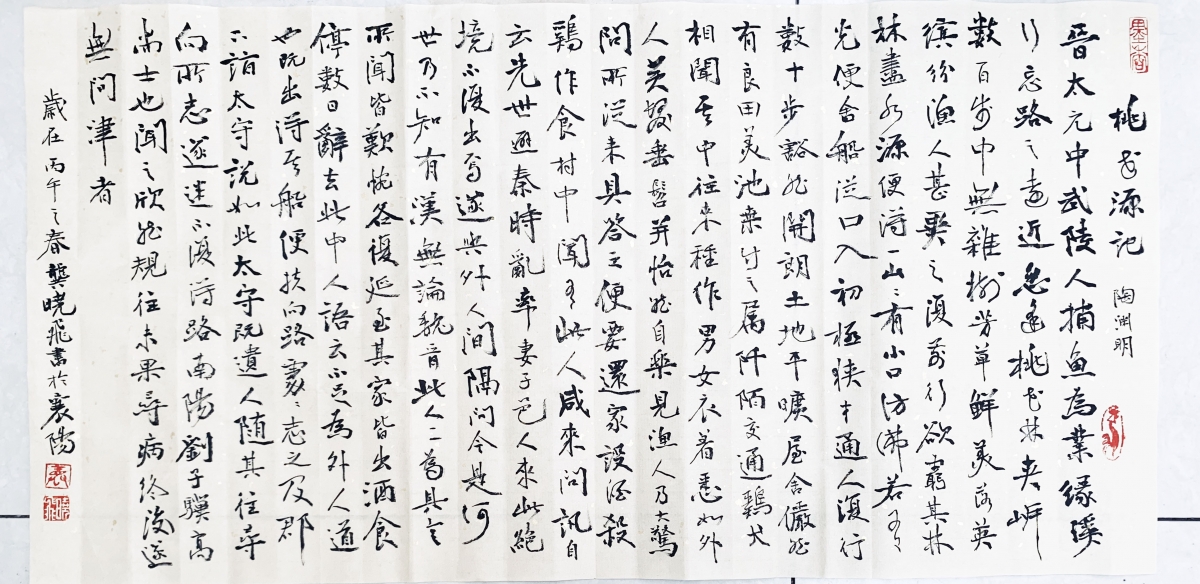 桃花源記
陶淵明
晉太元中武陵人捕魚為業緣溪
行忘路之遠近忽逢桃花林夾岸
數百步中無雜樹芳草鮮美落英
繽紛漁人甚異之復前行欲窮其林
林盡水源便得一山々有小口仿佛若有
光便舍船從口入初極狹才通人復行
數十步豁然開朗土地平曠屋舍儼然
有良田美池桑竹之屬阡陌交通鷄犬
相聞其中往來種作男女衣著悉如外
人黃髮垂髫并怡然自樂見漁人乃大驚
問所從來具答之便要還家設酒殺
鷄作食村中聞有此人咸來問訊自
云先世避秦時亂率妻子邑人來此絕
境不復出焉遂與外人間隔問今是何
世乃不知有漢無論魏晉此人一一為具言
所聞皆歎惋各復延至其家皆出酒食
停數日辭去此中人語云不足為外人道
也既出得其船便扶向路處々志之及郡
下詣太守說如此太守既遣人隨其往尋
向所志遂迷不復得路南陽劉子驥高
尚士也聞之欣然規往未果尋病終後遂
無問津者
歲在丙午之春龔曉飛書於襄陽